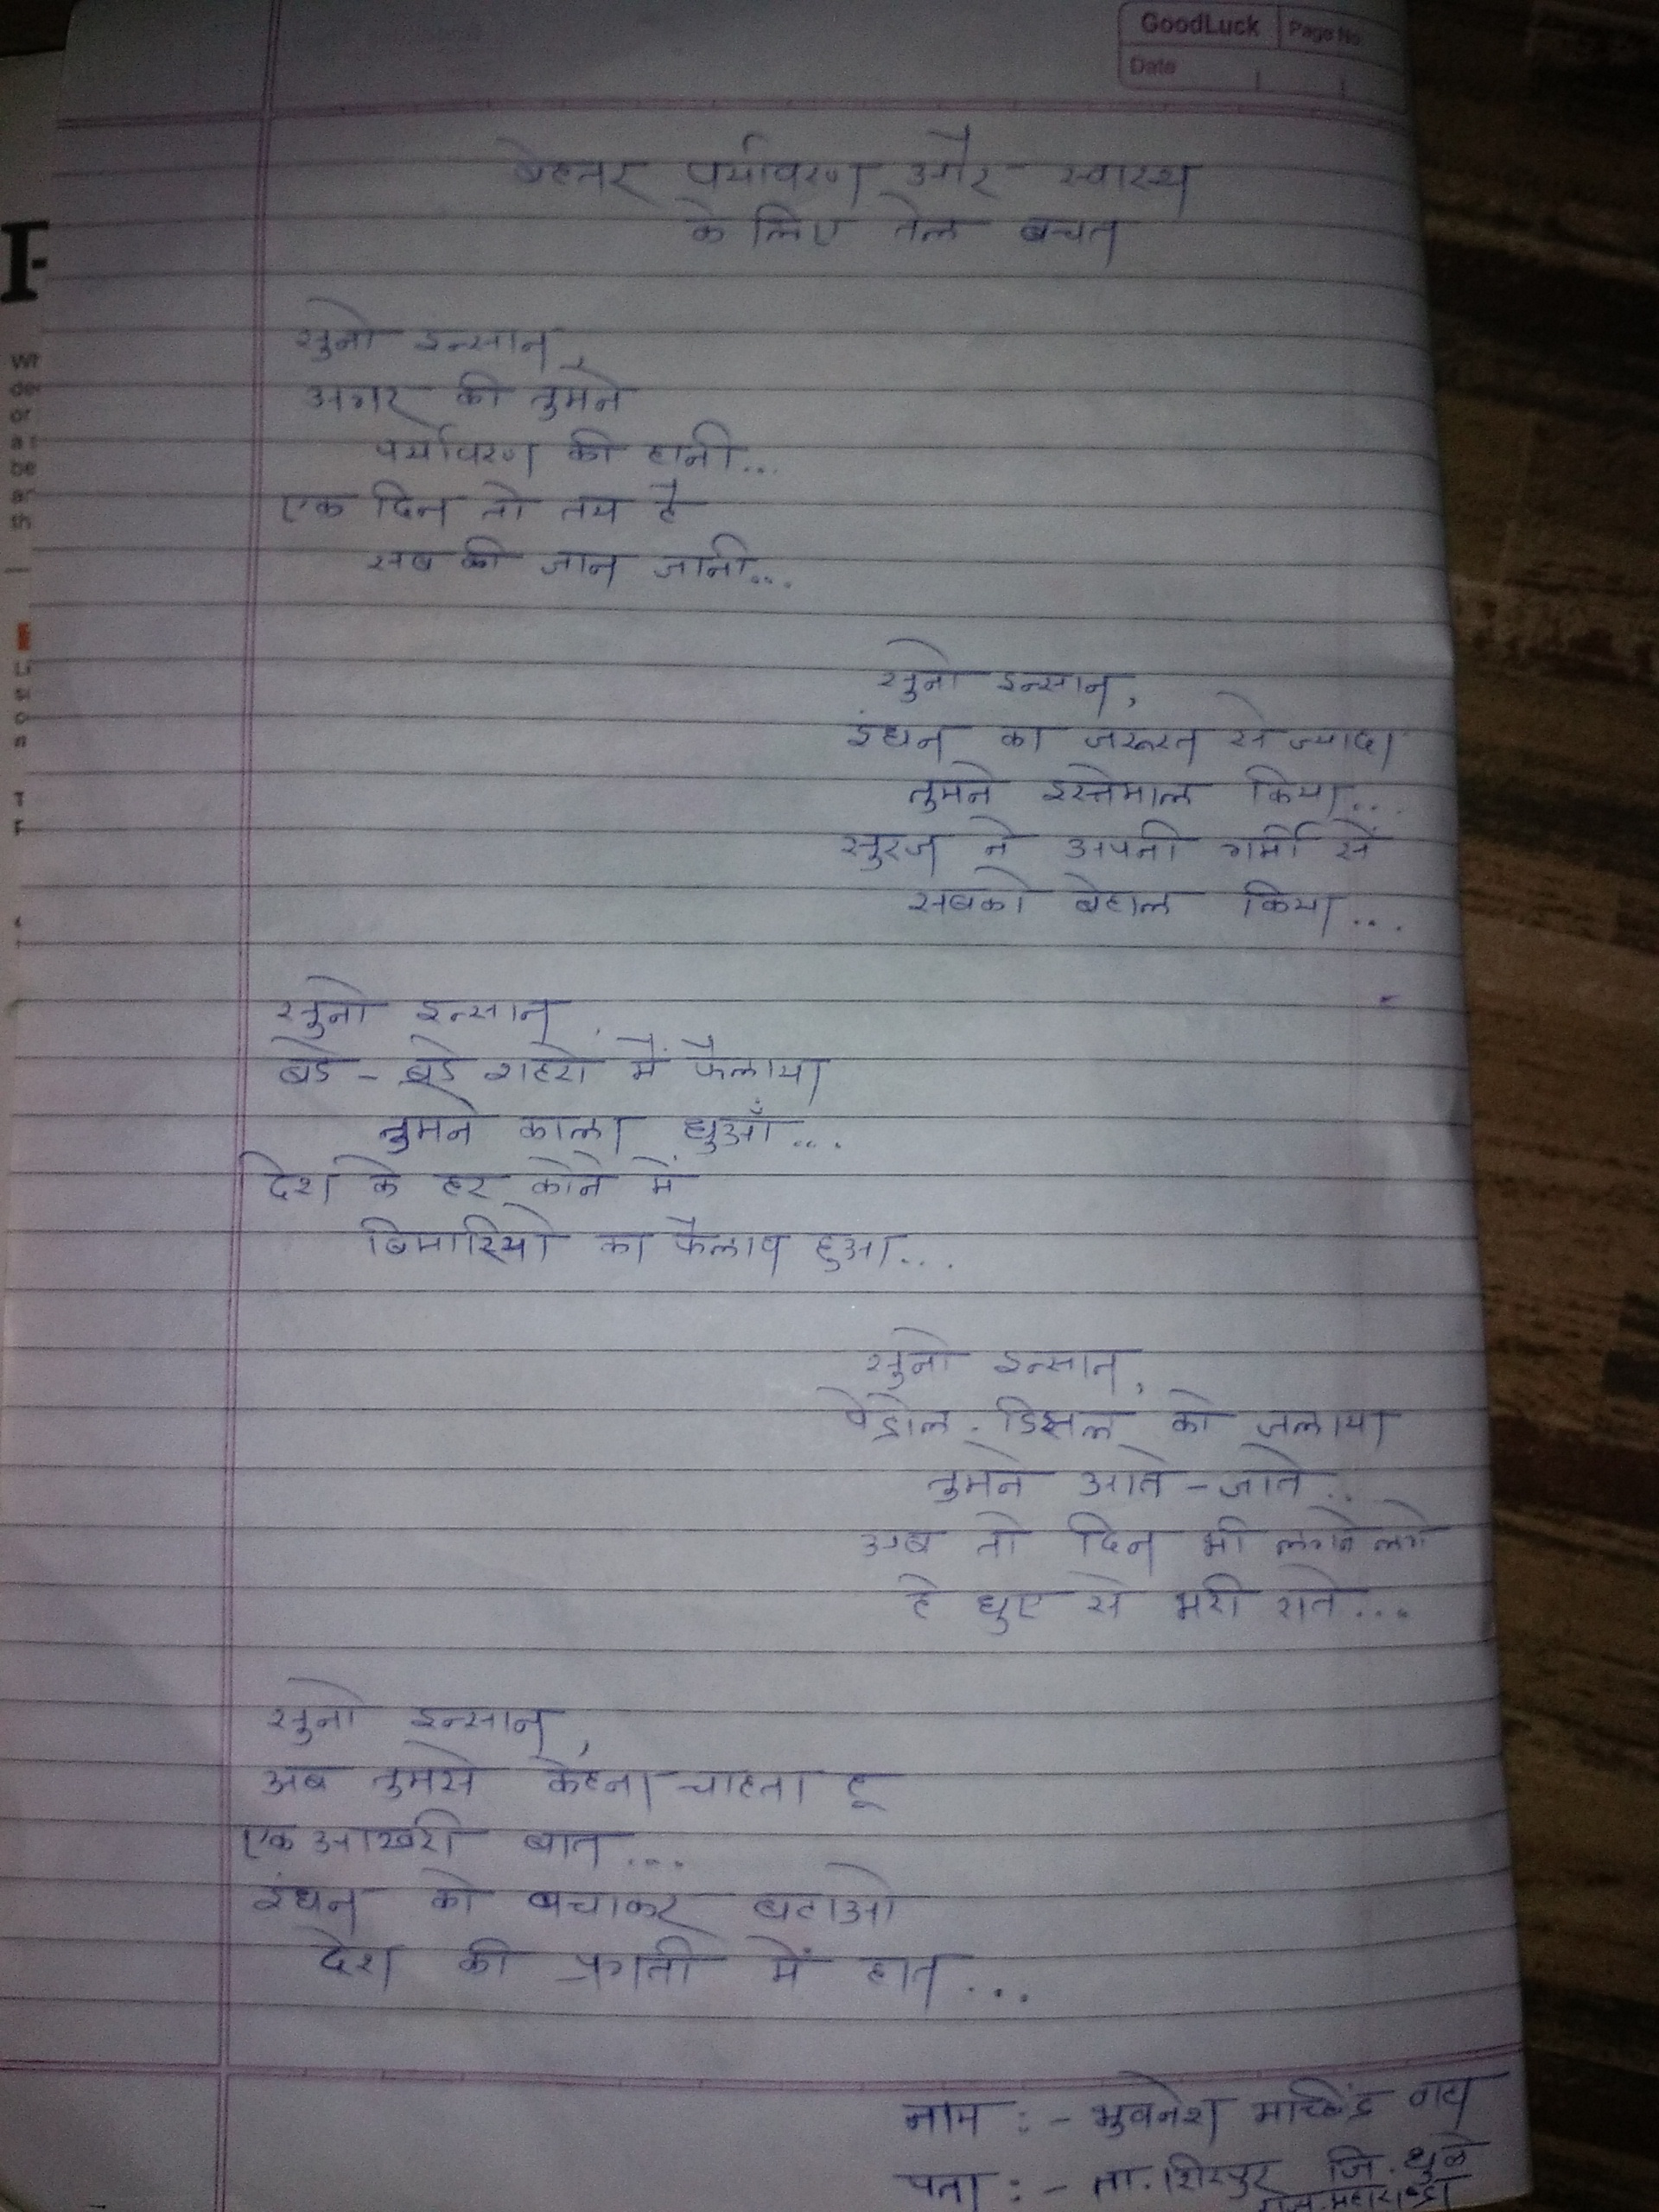 GoodLuck Page No
Date
बेहतर पर्यावरण और स्वास्थ
के लिए तेल बचत
सुनो इन्सान,
अगर की तुमने
पर्यावरण की हानी...
एक दिन तो तय है
सब की जान जानी...
सुनो इन्सान,
इंधन का जरूरत से ज्यादा
तुमने इस्तेमाल किया...
सुरज ने अपनी गर्मी से
सबको बेहाल किया...
सुनो इन्सान,
बडे - बडे शहरो में फैलाया
तुमने काला धुआँ...
देश के हर कोने में
बिमारियो का फैलाव हुआ...
सुनो इन्सान,
पेट्रोल. डिझल को जलाया
तुमने आते - जाते..
अब तो दिन भी लगने लगे
है धुए से भरी राते...
सुनो इन्सान,
अब तुमसे केहना चाहता हू
एक आखरी बात...
इंधन को बचाकर बटाओ
देश की प्रगती में हात...
नाम :- भुवनेश मच्छिंद्र
पता :- ता. शिरपुर जि. धुळे
राज्य. महाराष्ट्र